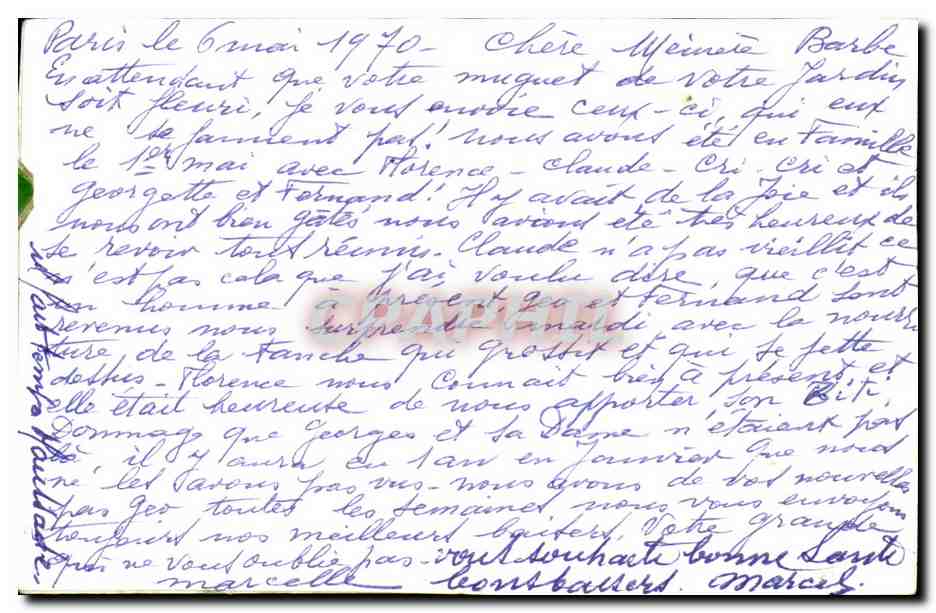 Paris le 6 mai 1970 - Chère Mémère Barbe
En attendant que votre muguet de votre Jardin
soit fleuri, Je vous envoie ceux-ci, qui eux
ne se fannent pas! nous avons été en Famille
le 1er mai avec Florence - Claude - Cri-Cri et
Georgette et Fernand! Il y avait de la Joie et ils
nous ont bien gâtés nous avions été très heureux de
se revoir tous réunis. Claude n'a pas vieillit ce
n'est pas cela que J'ai voulu dire que c'est
un homme à présent, Geo et Fernand sont
revenus nous surprendre mardi avec la nourri
ture de la Tanche qui grossit et qui se jette
dessus - Florence nous connait bien à présent et
elle était heureuse de nous apporter son
Dommage que Georges et sa Dame n'étaient pas
là, il y aura eu 1 an en Janvier que nous
ne les avons pas vus - nous avons de vos nouvelles
par Geo toutes les semaines nous vous envoyons
toujours nos meilleurs baisers, Votre grande
qui ne vous oublie pas - vous souhaite bonne Santé
marcelle bons baisers. Marcel.
CPAPHIL